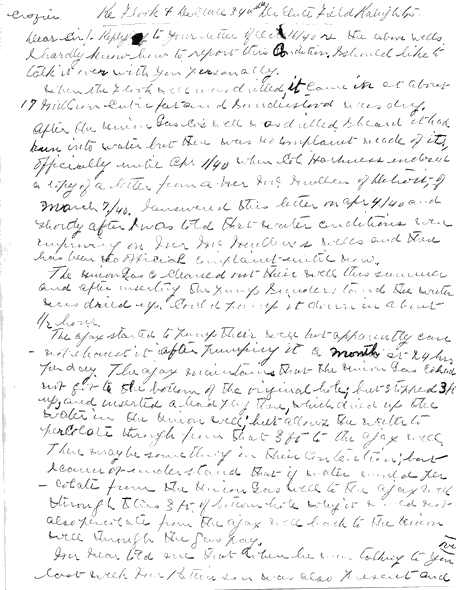 Crozier Re Flook & 34
Dear Sir:- Reply to Your letter of Oct 11/40 re the above wells
I hardly know how to report this Condition. I should like to
talk it over with you personally.
When the Flook well was drilled, it came in at about
17 Million Cubic feet and I understood was dry.
After the Union Gas Co's well was drilled I heard it had
run into water but there was no complaint made of it,
officially until Apr 1/40 when Col Harkness enclosed
a copy of a letter from a Mr Mc Mullen of Detroit, of
March 7/40. I answered this letter on Apr 4/40 and
shortly after I was told that water conditions were
improving on Mr Mc Mullen's wells and there
has been no official complaint until now.
The Union Gas Co cleaned out their well this summer
and after inserting the pump I understand the water
was dried up. Could pump it down in about
1/2 hour.
The Ajax started to pump their well but apparently can
- not exhaust it after pumping it a month at 24 hrs
per day. The Ajax maintains that the Union Gas Co did
not go to the bottom of the original hole, but stopped 3 ft
up, and inserted a lead plug there, which dried up the
water in the Union well; but allows the water to
percolate through from that 3 ft to the Ajax well.
There may be something in their Contention; but
I cannot understand that if water could per
- colate from the Union Gas well to the Ajax well
through this 3 ft of bottom hole why it would not
also percolate from the Ajax well back to the Union
well through the Gas pay.
Mr told me that when he was talking to You
last week Mr was also present and